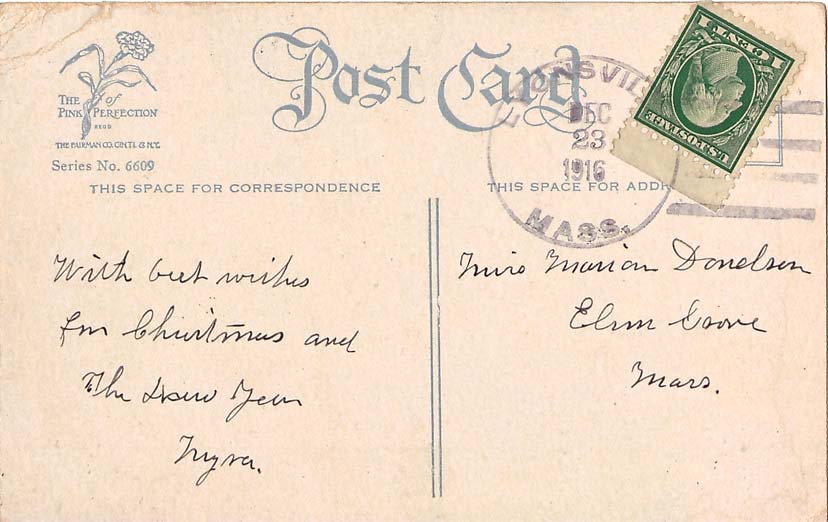 Post Card
THE of
PINK PERFECTION
REGD
THE FAIRMAN CO. CIN'TI. & N.Y.
Series No. 6609
THIS SPACE FOR CORRESPONDENCE
THIS SPACE FOR ADDR
LYONSVIL
DEC
23
1916
MASS.
1 CENT 1
U.S. POSTAGE
With best wishes
for Christmas and
The New Year
Myra.
Miss Marian Donelson
Elm Grove
Mass.